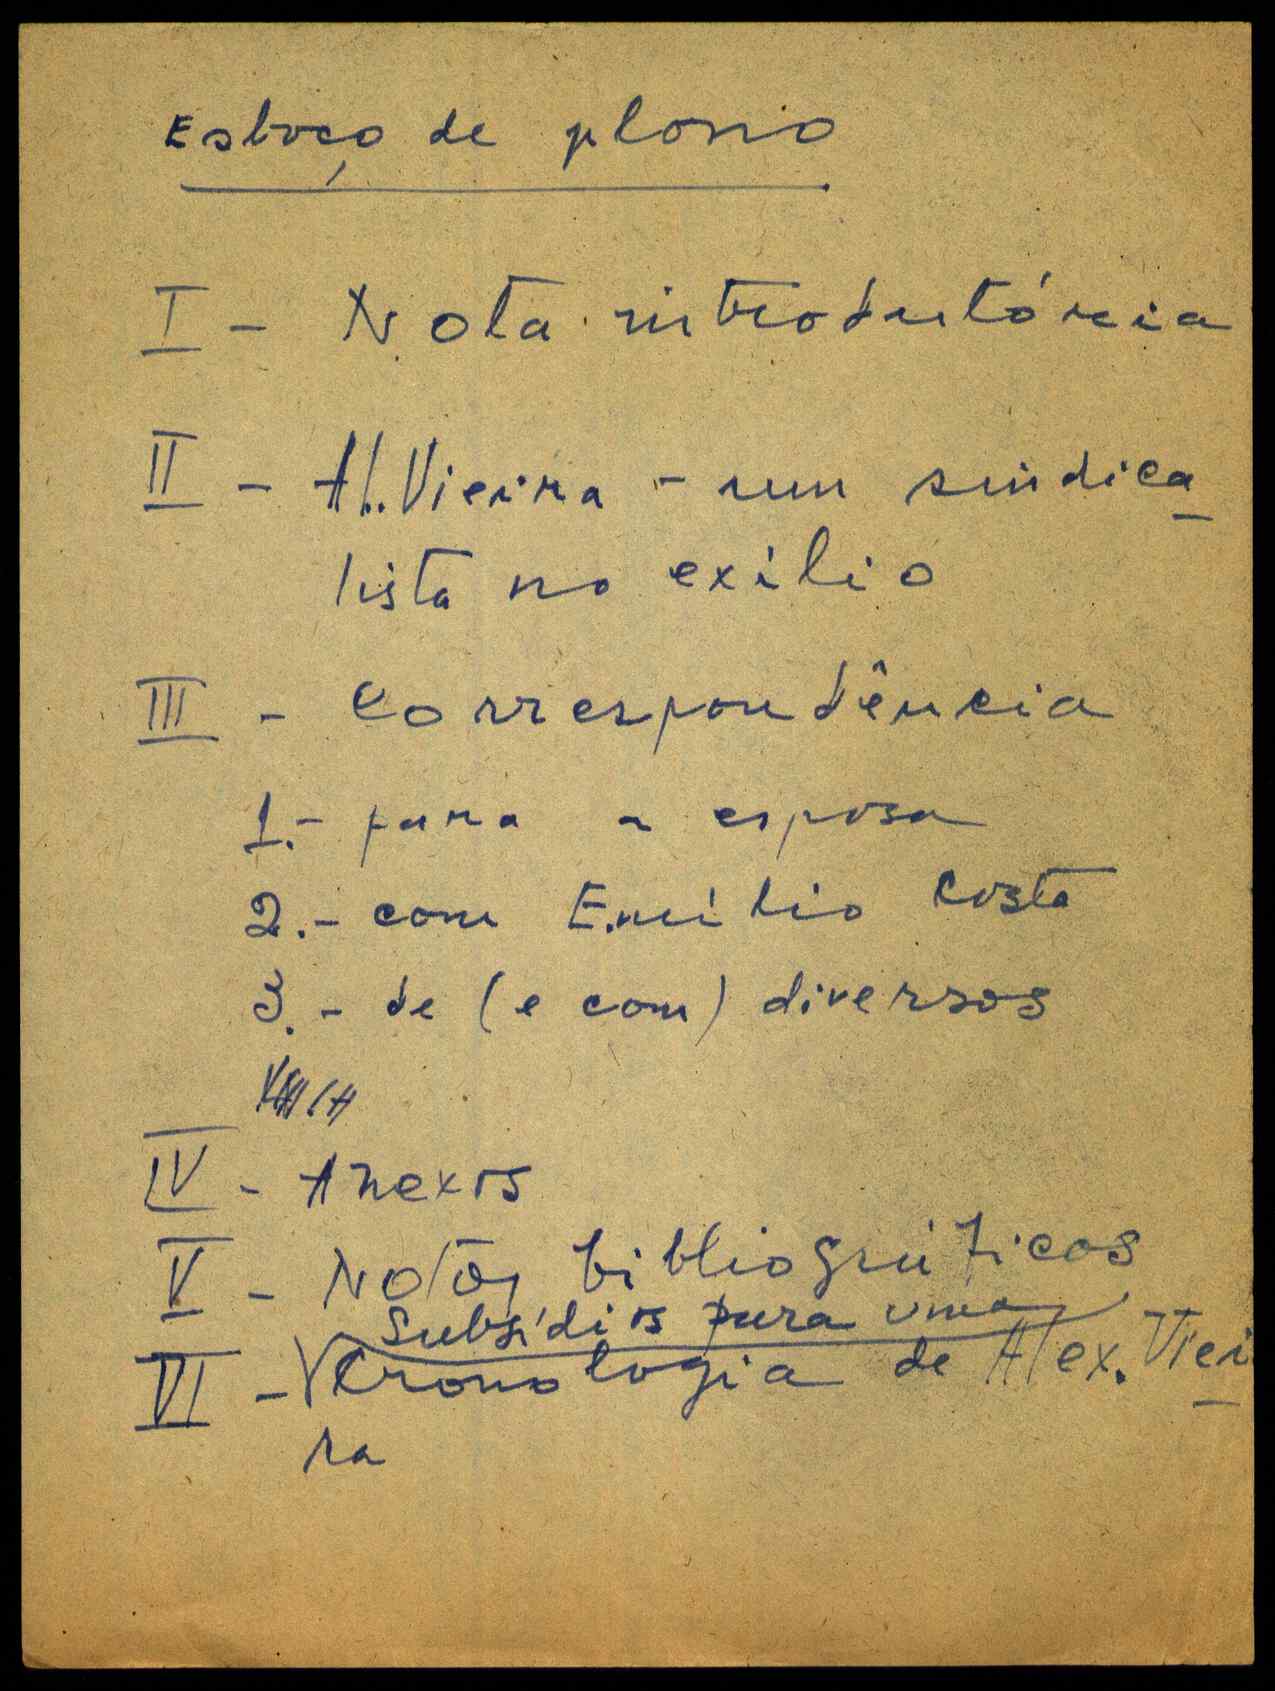 Esboço de plano
I - Nota introdutória
II - Al. Vieira - um sindica
lista no exílio
III - Correspondência
1. - para a esposa
2. - com Emílio Costa
3. - de (e com) diversos
IV - Anexos
V - Notas bibliográficas
Subsídios para uma
VI - Cronologia de Alex. Viei
ra